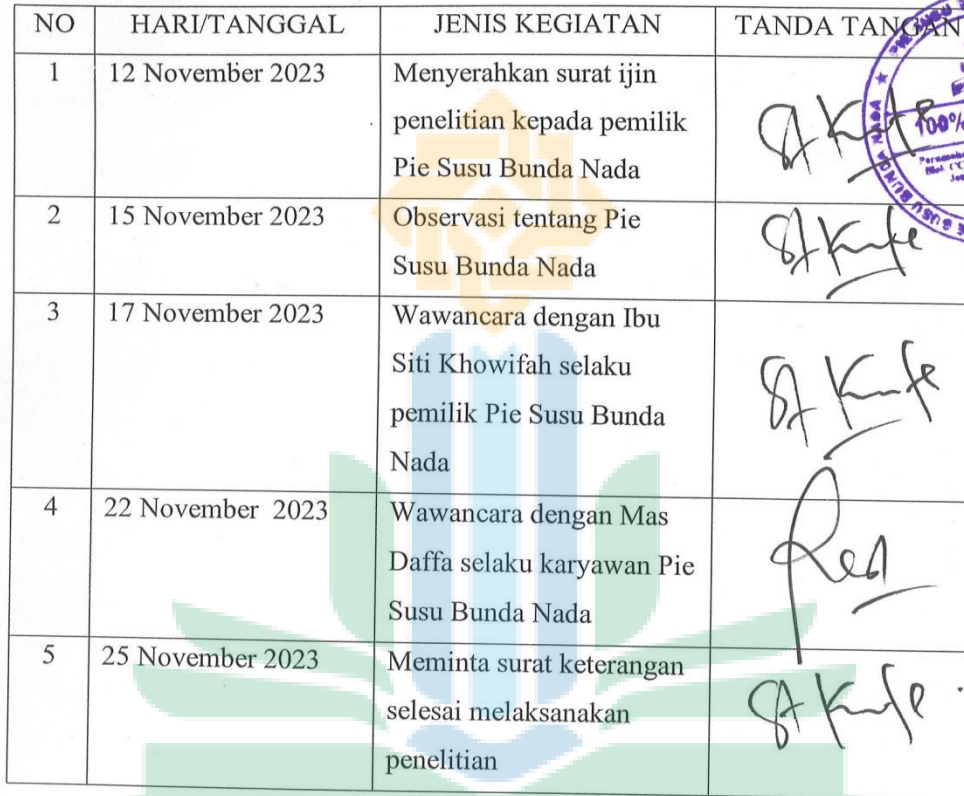 NO HARI/TANGGAL JENIS KEGIATAN TANDA TANGAN
1 12 November 2023 Menyerahkan surat ijin
penelitian kepada pemilik
Pie Susu Bunda Nada
2 15 November 2023 Observasi tentang Pie
Susu Bunda Nada
3 17 November 2023 Wawancara dengan Ibu
Siti Khowifah selaku
pemilik Pie Susu Bunda
Nada
4 22 November 2023 Wawancara dengan Mas
Daffa selaku karyawan Pie
Susu Bunda Nada
5 25 November 2023 Meminta surat keterangan
selesai melaksanakan
penelitian
100%
SUSU BUNDA NADA